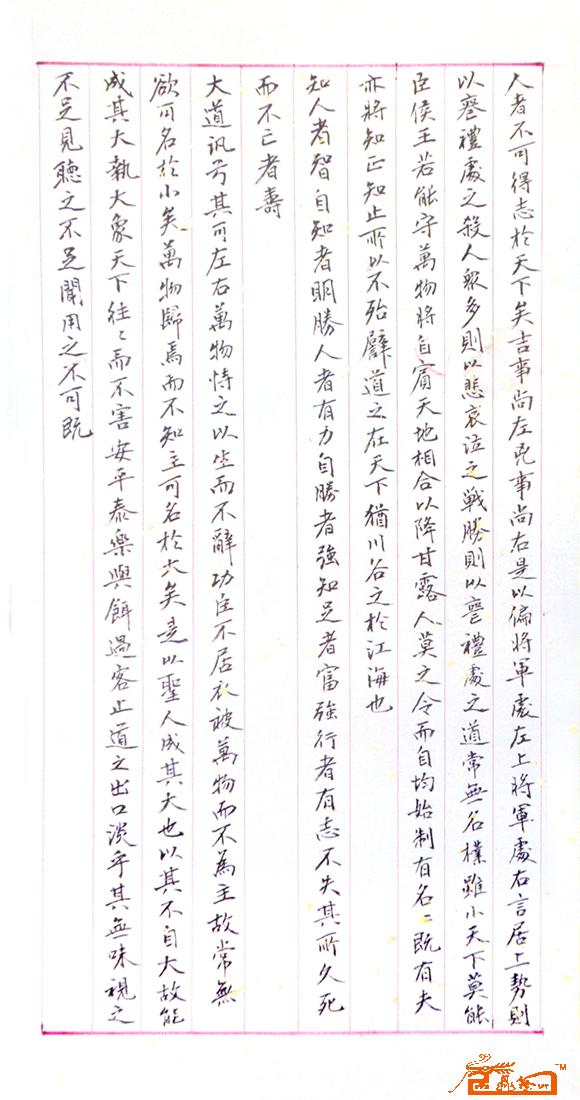 人者不可得志於天下矣吉事尚左凶事尚右是以偏將軍處左上將軍處右言居上勢則
以喪禮處之殺人眾多則以悲哀泣之戰勝則以喪禮處之道常無名樸雖小天下莫能
臣侯王若能守萬物將自賓天地相合以降甘露人莫之令而自均始制有名〻既有夫
亦將知止知止所以不殆譬道之在天下猶川谷之於江海也
知人者智自知者明勝人者有力自勝者強知足者富強行者有志不失其所久死
而不亡者壽
大道汎兮其可左右萬物恃之以生而不辭功成不居衣被萬物而不為主故常無
欲可名於小矣萬物歸焉而不知主可名於大矣是以聖人成其大也以其不自大故能
成其大執大象天下往〻而不害安平泰樂與餌過客止道之出口淡乎其無味視之
不足見聽之不足聞用之不可既